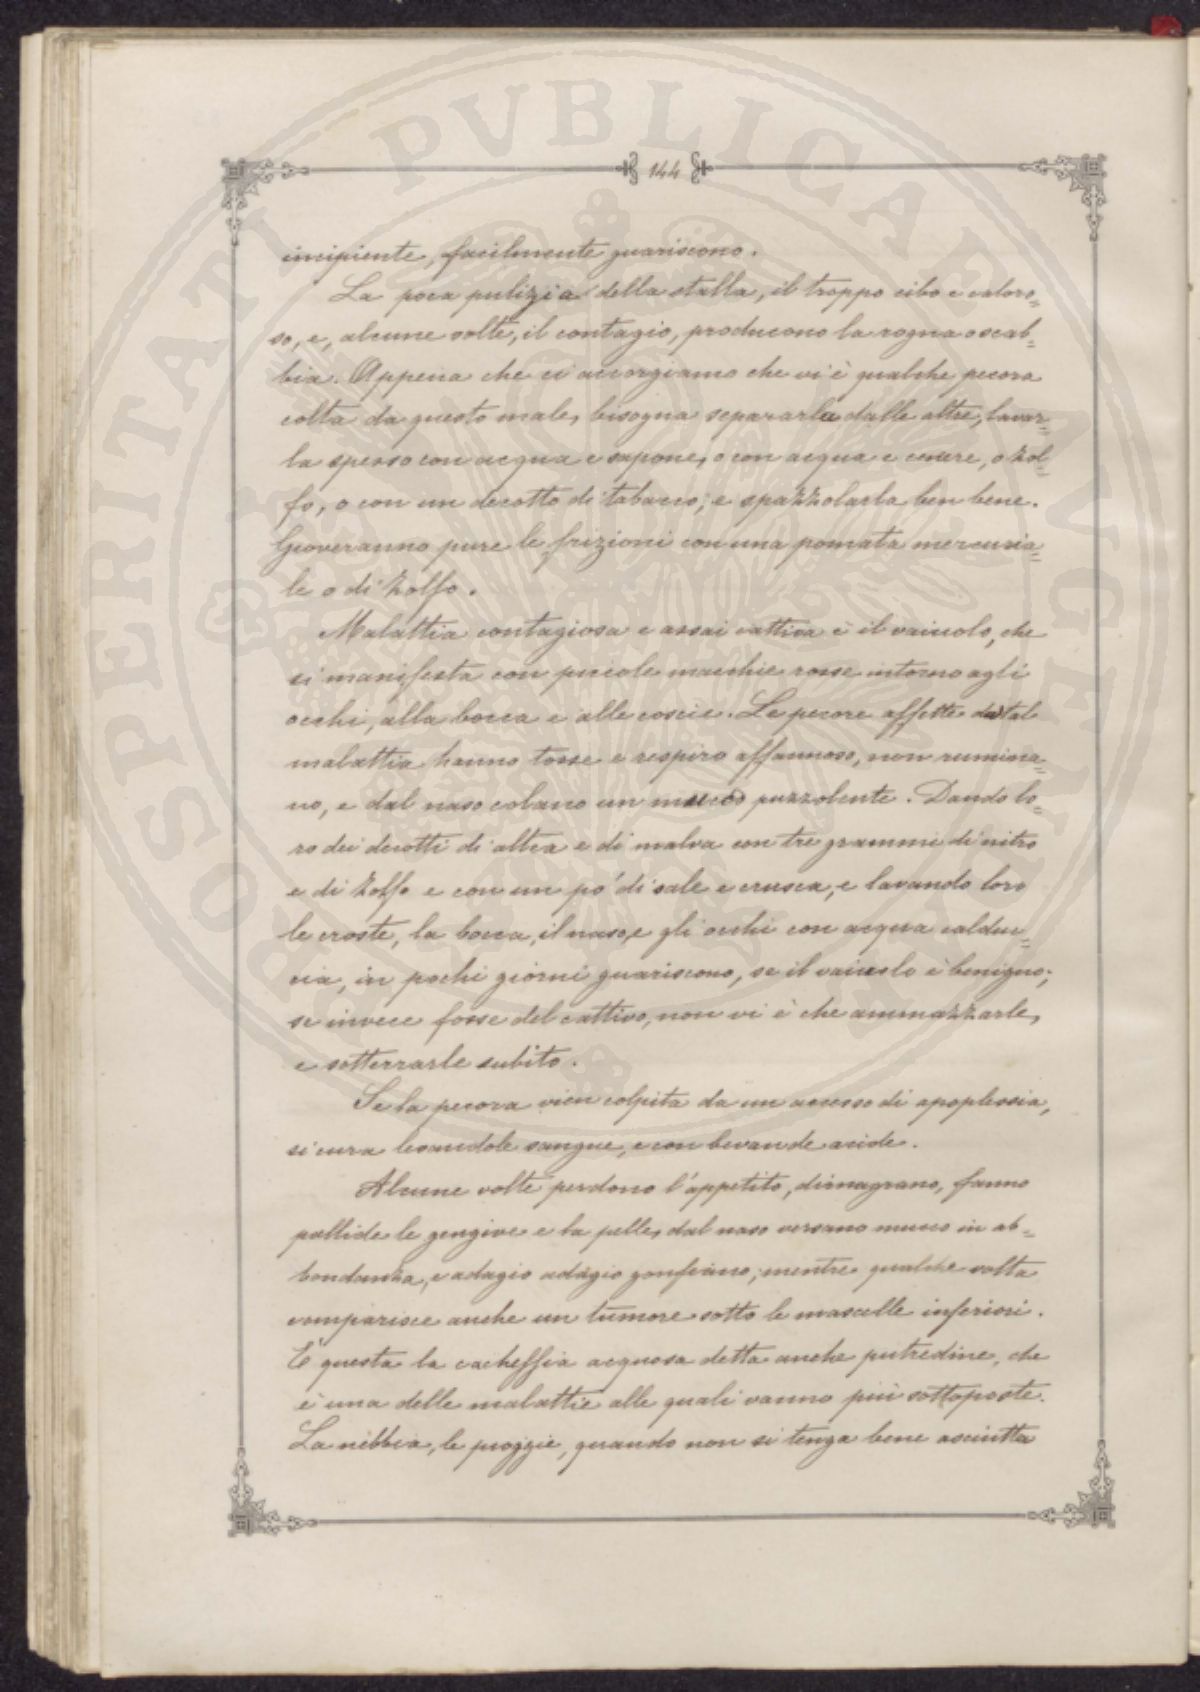 PROSPERITATI PVBLICAE AVGENDAE
144
incipiente, facilmente guariscono.
La poca pulizia della stalla, il troppo cibo e caloro=
so, e, alcune volte, il contagio, producono la rogna o scab=
bia. Appena che ci accorgiamo che vi è qualche pecora
colta da questo male, bisogna separarla dalle altre, lavar=
la spesso con acqua e sapone, o con acqua e cenere, o zol=
fo, o con un decotto di tabacco, e spazzolarla ben bene.
Gioveranno pure le frizioni con una pomata mercuria=
le o di zolfo.
Malattia contagiosa e assai cattiva è il vaiuolo, che
si manifesta con piccole macchie rosse intorno agli
occhi, alla bocca e alle coscie. Le pecore affette da tal
malattia hanno tosse e respiro affannoso, non rumina=
no, e dal naso colano un mucco puzzolente. Dando lo=
ro dei decotti di altea e di malva con tre grammi di nitro
e di zolfo e con un po' di sale e crusca, e lavando loro
le croste, la bocca, il naso, e gli occhi con acqua calduc=
cia, in pochi giorni guariscono, se il vaiuolo è benigno;
se invece fosse del cattivo, non vi è che ammazzarle,
e sotterrarle subito.
Se la pecora vien colpita da un accesso di apoplessia,
si cura levandole sangue, e con bevande acide.
Alcune volte perdono l'appetito, dimagrano, fanno
pallide le gengive e la pelle, dal naso versano mucco in ab=
bondanza, e adagio adagio gonfiano; mentre qualche volta
comparisce anche un tumore sotto le mascelle inferiori.
È questa la cacheffia acquosa detta anche putredine, che
è una delle malattie alle quali vanno più sottoposte.
La nebbia, le pioggie, quando non si tenga bene asciutta